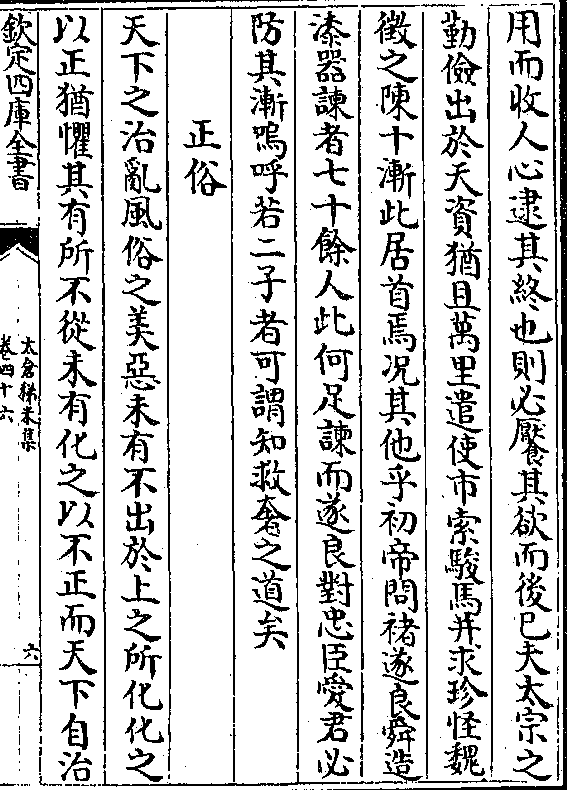 用而收人心逮其終也則必饜其欲而後已夫太宗之
勤儉出於天資猶且萬里遣使市索駿馬并求珍怪魏
徵之陳十漸此居首焉况其他乎初帝問褚遂良舜造
漆器諫者七十餘人此何足諫而遂良對忠臣愛君必
防其漸嗚呼若二子者可謂知救奢之道矣
正俗
天下之治亂風俗之美惡未有不出於上之所化化之
以正猶懼其有所不從未有化之以不正而天下自治
欽定四庫全書
太倉稊米集
卷四十六
六